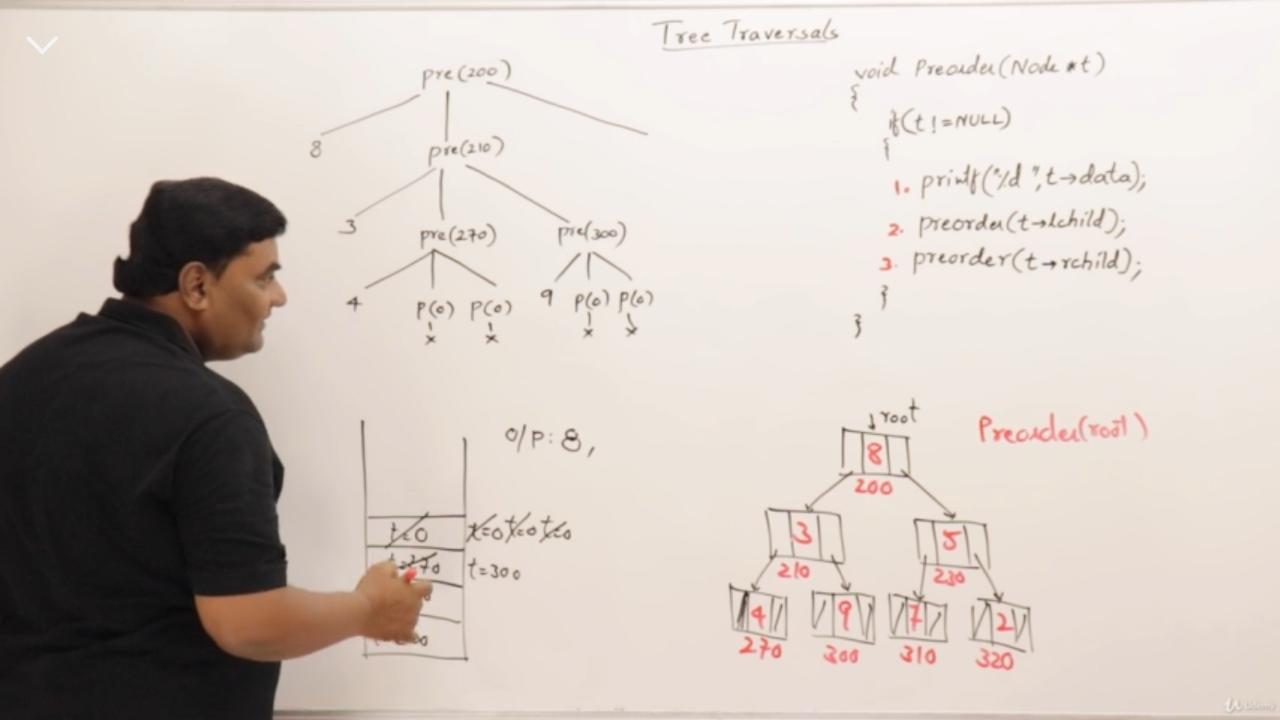 Tree Traversals
pre(200)
8
pre(210)
3
pre(270)
pre(300)
4
P(0)
P(0)
9
P(0)
P(0)
x
x
x
x
void Preorder(Node *t)
{
if(t!=NULL)
{
1. printf("%d",t→data);
2. preorder(t→lchild);
3. preorder(t→rchild);
}
}
O/P: 8,
t=0
t=0 t=0 t=0
t=270
t=300
↓root
Preorder(root)
8
200
3
5
210
230
4
9
7
2
270
300
310
320
Udemy